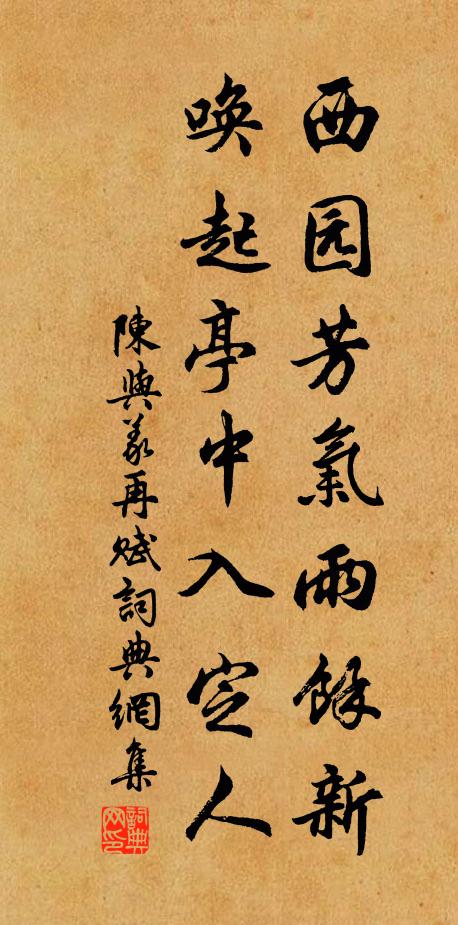 西园芳氣雨餘新
喚起亭中入定人
陳與義再赋詞典網集
詞典网印